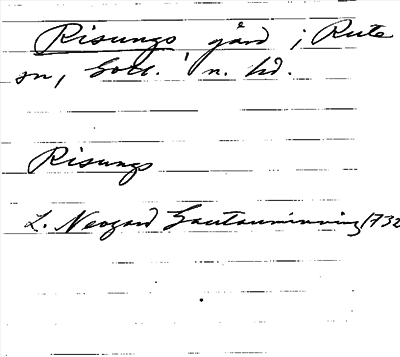 Risungs gård i Rute
sn, Gotl. n. hd.
Risungs
L. Neogard Gautauminning 1732